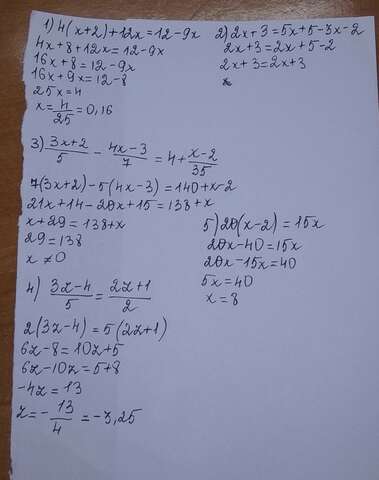 1) 4(x+2)+12x=12-9x
4x+8+12x=12-9x
16x+8=12-9x
16x+9x=12-8
25x=4
x=4/25=0,16
2) 2x+3=5x+5-3x-2
2x+3=2x+5-2
2x+3=2x+3
3) (3x+2)/5 - (4x-3)/7 = 4+(x-2)/35
7(3x+2)-5(4x-3)=140+x-2
21x+14-20x+15=138+x
x+29=138+x
29=138
x≠0
4) (3z-4)/5=(2z+1)/2
2(3z-4)=5(2z+1)
6z-8=10z+5
6z-10z=5+8
-4z=13
z=-13/4=-3,25
5) 20(x-2)=15x
20x-40=15x
20x-15x=40
5x=40
x=8